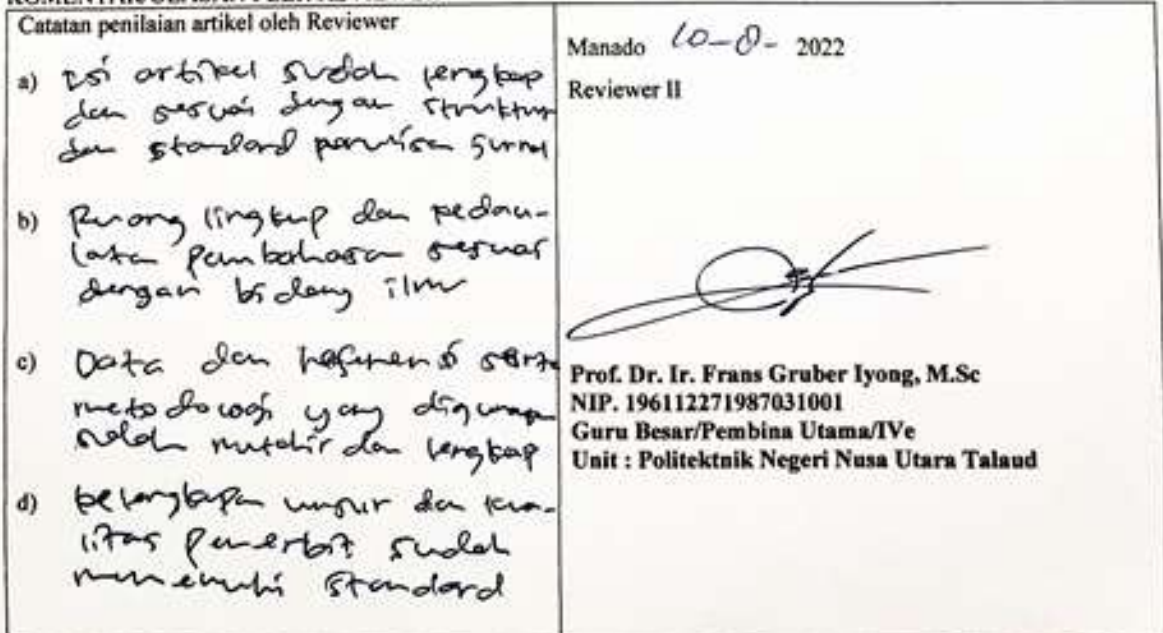 Catatan penilaian artikel oleh Reviewer
a) Isi artikel sudah lengkap
dan sesuai dengan struktur
dan standard penulisan jurnal
b) Ruang lingkup dan kedau-
latan pembahasan sesuai
dengan bidang ilmu
c) Data dan referensi serta
metodologi yang digunakan
sudah mutahir dan lengkap
d) kelengkapan unsur dan kua-
litas penerbit sudah
memenuhi standard
Manado 10-8- 2022
Reviewer II
Prof. Dr. Ir. Frans Gruber Iyong, M.Sc
NIP. 196112271987031001
Guru Besar/Pembina Utama/IVe
Unit : Politektnik Negeri Nusa Utara Talaud